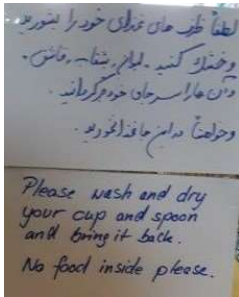 لطفاً ظرف های غذای خود را بشورید
و خشک کنید. لیوان، بشقاب، قاشق.
و آن ها را سر جای خود برگردانید.
و خواهشاً در این جا غذا نخورید.
Please wash and dry
your cup and spoon
and bring it back.
No food inside please.